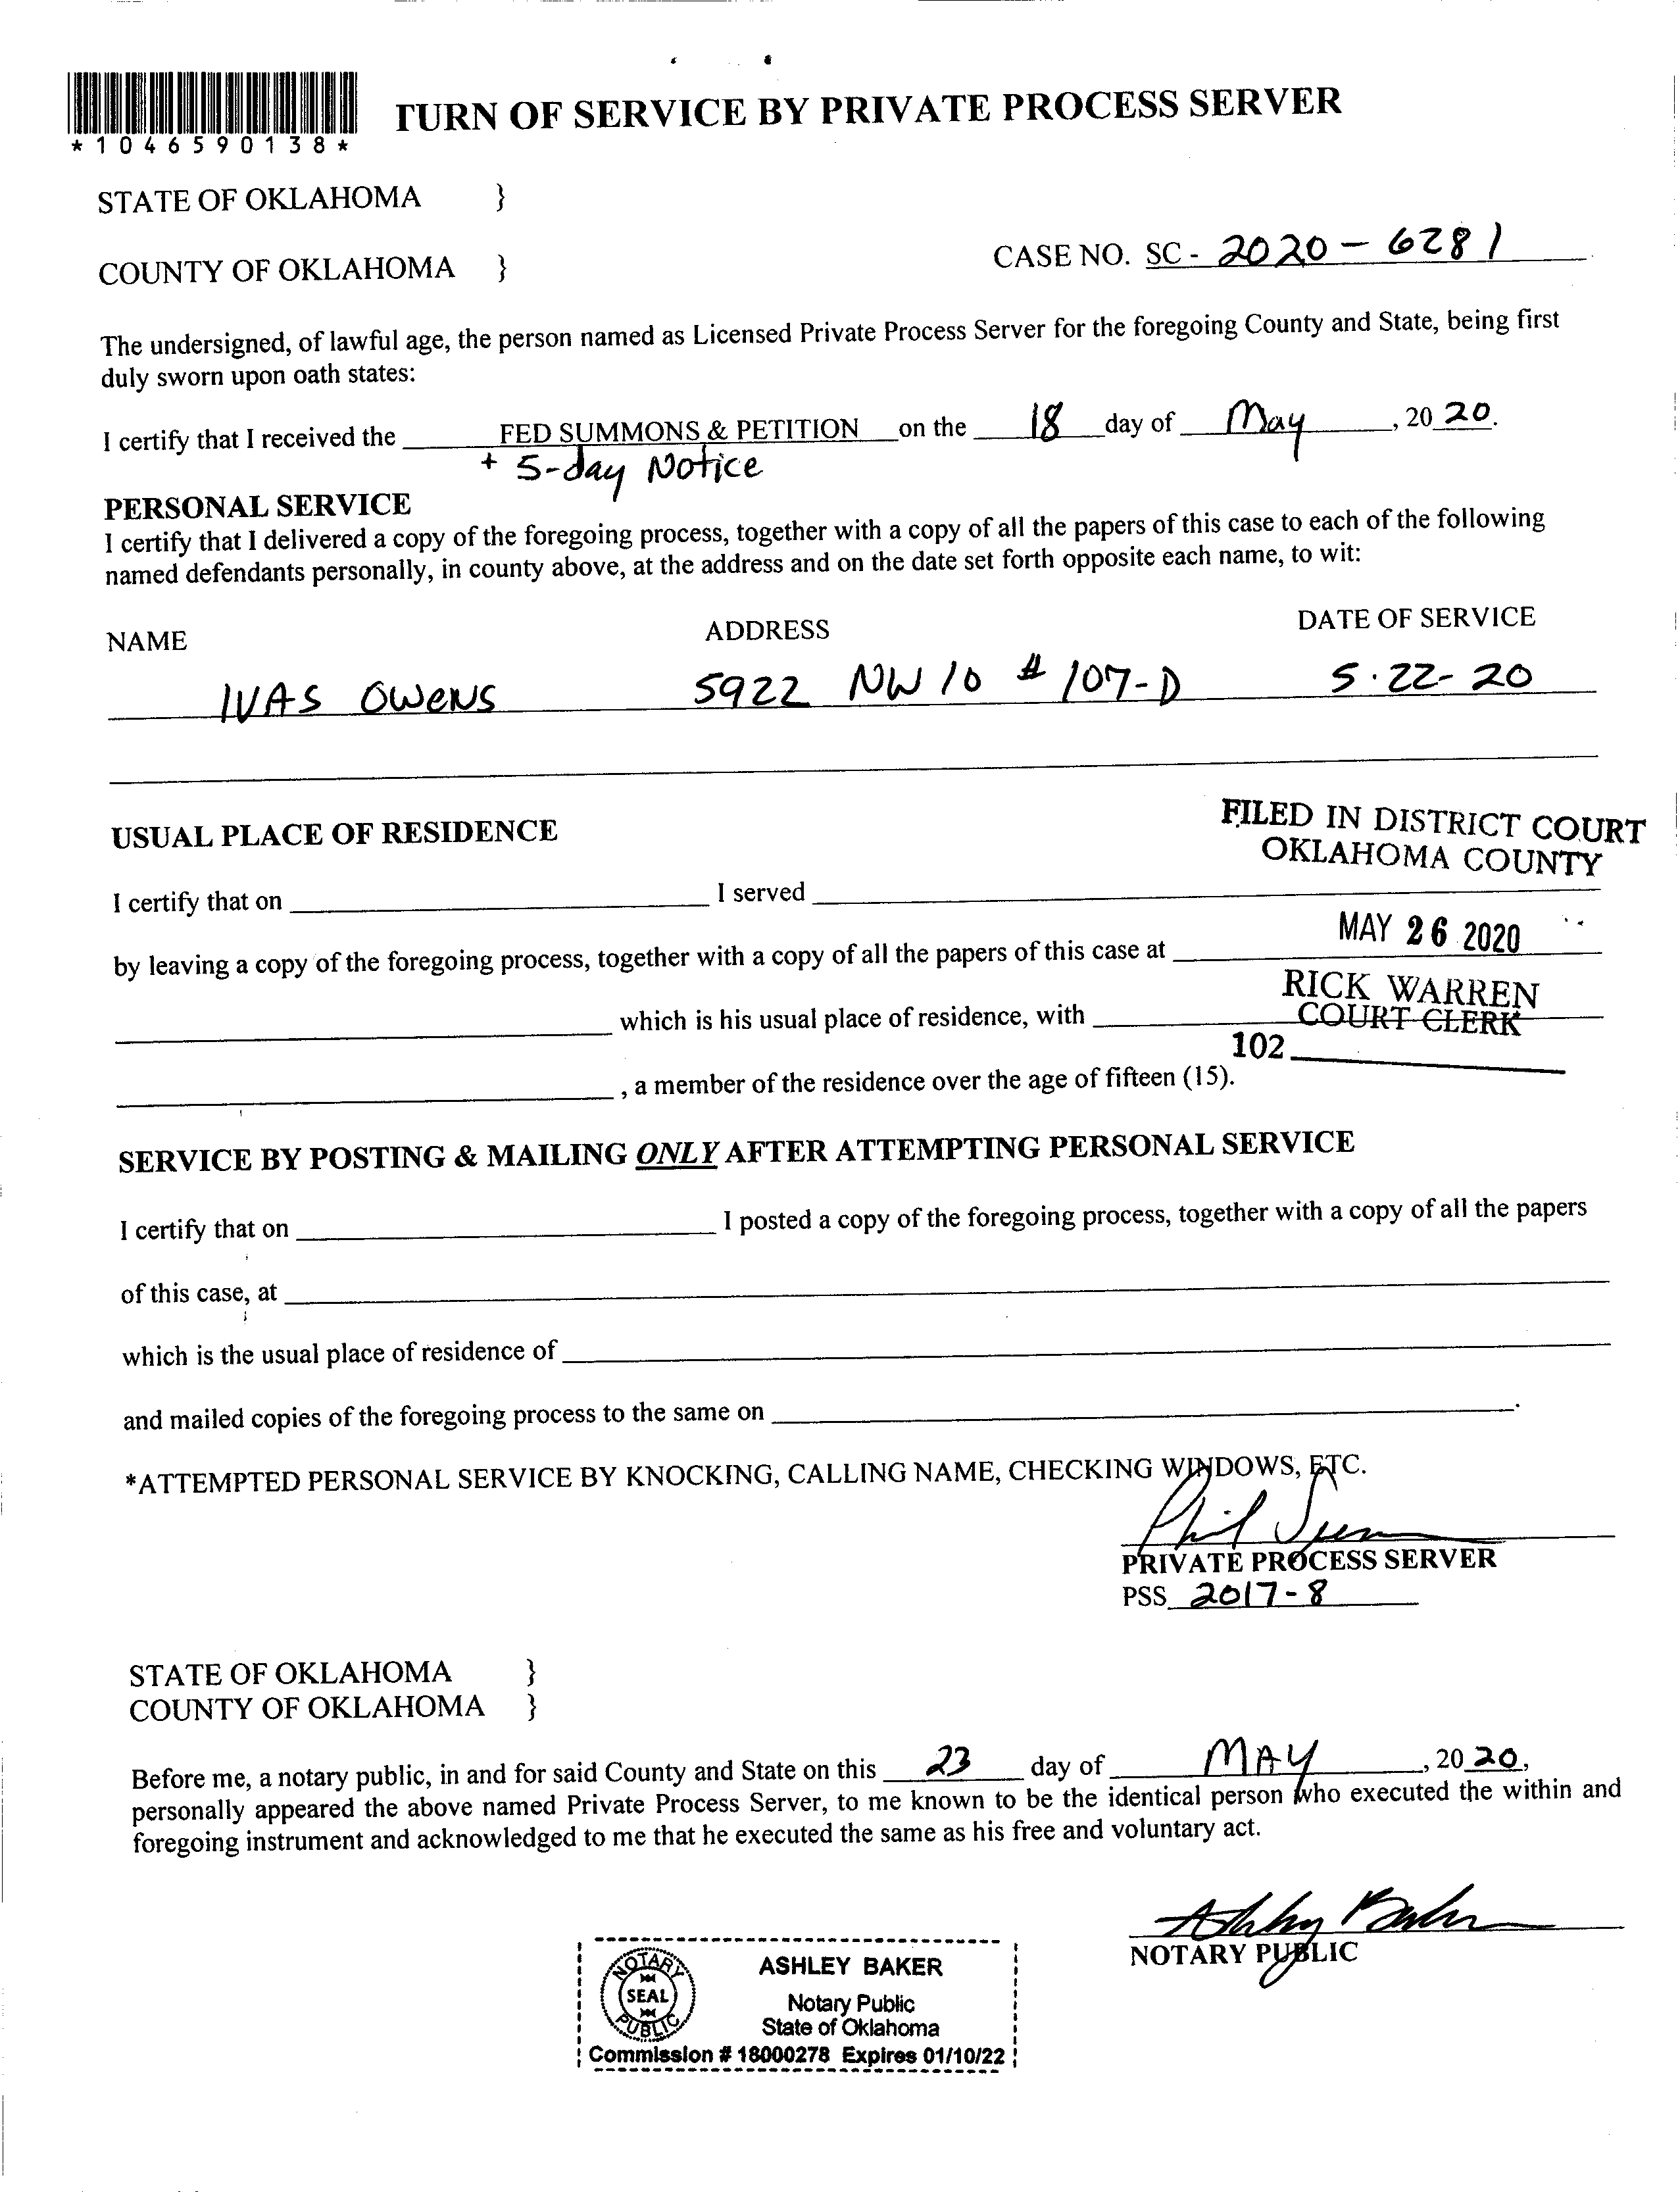 TURN OF SERVICE BY PRIVATE PROCESS SERVER
*1046590138*
STATE OF OKLAHOMA }
CASE NO. SC - 2020 - 6281
COUNTY OF OKLAHOMA }
The undersigned, of lawful age, the person named as Licensed Private Process Server for the foregoing County and State, being first
duly sworn upon oath states:
I certify that I received the FED SUMMONS & PETITION on the 18 day of May, 20 20.
+ 5-day Notice
PERSONAL SERVICE
I certify that I delivered a copy of the foregoing process, together with a copy of all the papers of this case to each of the following
named defendants personally, in county above, at the address and on the date set forth opposite each name, to wit:
NAME ADDRESS DATE OF SERVICE
IVAS OWENS 5922 NW 10 # 107-D 5·22-20
USUAL PLACE OF RESIDENCE
FILED IN DISTRICT COURT
OKLAHOMA COUNTY
I certify that on I served
MAY 26 2020
by leaving a copy of the foregoing process, together with a copy of all the papers of this case at
RICK WARREN
COURT CLERK
which is his usual place of residence, with
102
, a member of the residence over the age of fifteen (15).
SERVICE BY POSTING & MAILING ONLY AFTER ATTEMPTING PERSONAL SERVICE
I certify that on I posted a copy of the foregoing process, together with a copy of all the papers
of this case, at
which is the usual place of residence of
and mailed copies of the foregoing process to the same on .
*ATTEMPTED PERSONAL SERVICE BY KNOCKING, CALLING NAME, CHECKING WINDOWS, ETC.
Phil
PRIVATE PROCESS SERVER
PSS 2017-8
STATE OF OKLAHOMA }
COUNTY OF OKLAHOMA }
Before me, a notary public, in and for said County and State on this 23 day of MAY, 20 20,
personally appeared the above named Private Process Server, to me known to be the identical person who executed the within and
foregoing instrument and acknowledged to me that he executed the same as his free and voluntary act.
Ashley Baker
NOTARY PUBLIC
NOTARY
SEAL
PUBLIC
ASHLEY BAKER
Notary Public
State of Oklahoma
Commission # 18000278 Expires 01/10/22